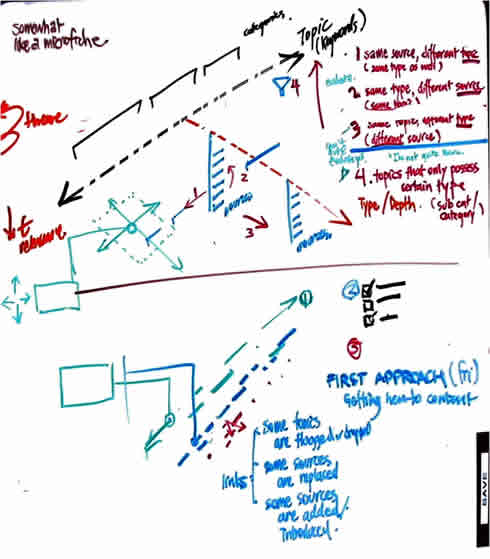 somewhat
like a microfiche
categories
Topic
(keywords)
4
1 same source, different type
(same type as well)
2 same type, different source
(same topic)
3 same topic, different type
(different source)
4. topics that only possess
certain type
Type/Depth. (sub cat/
category)
3 theme
1
2
sources
3
sources
1
2
3
FIRST APPROACH (fri)
Getting them to contrast
links
some topics
are flagged
some sources
are replaced
some sources
are added/
introduced.
SAVE